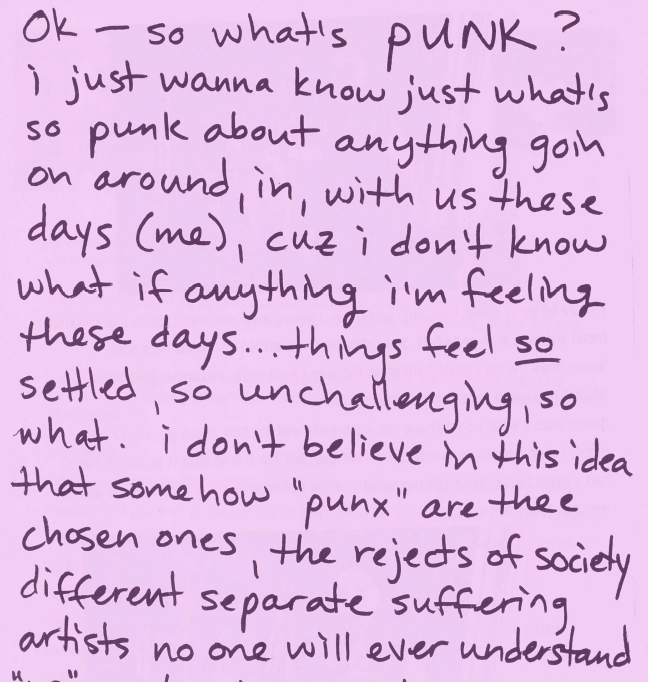 Ok – so what's PUNK?
i just wanna know just what's
so punk about anything goin
on around, in, with us these
days (me), cuz i don't know
what if anything i'm feeling
these days...things feel so
settled, so unchallenging, so
what. i don't believe in this idea
that somehow "punx" are thee
chosen ones, the rejects of society
different separate suffering
artists no one will ever understand